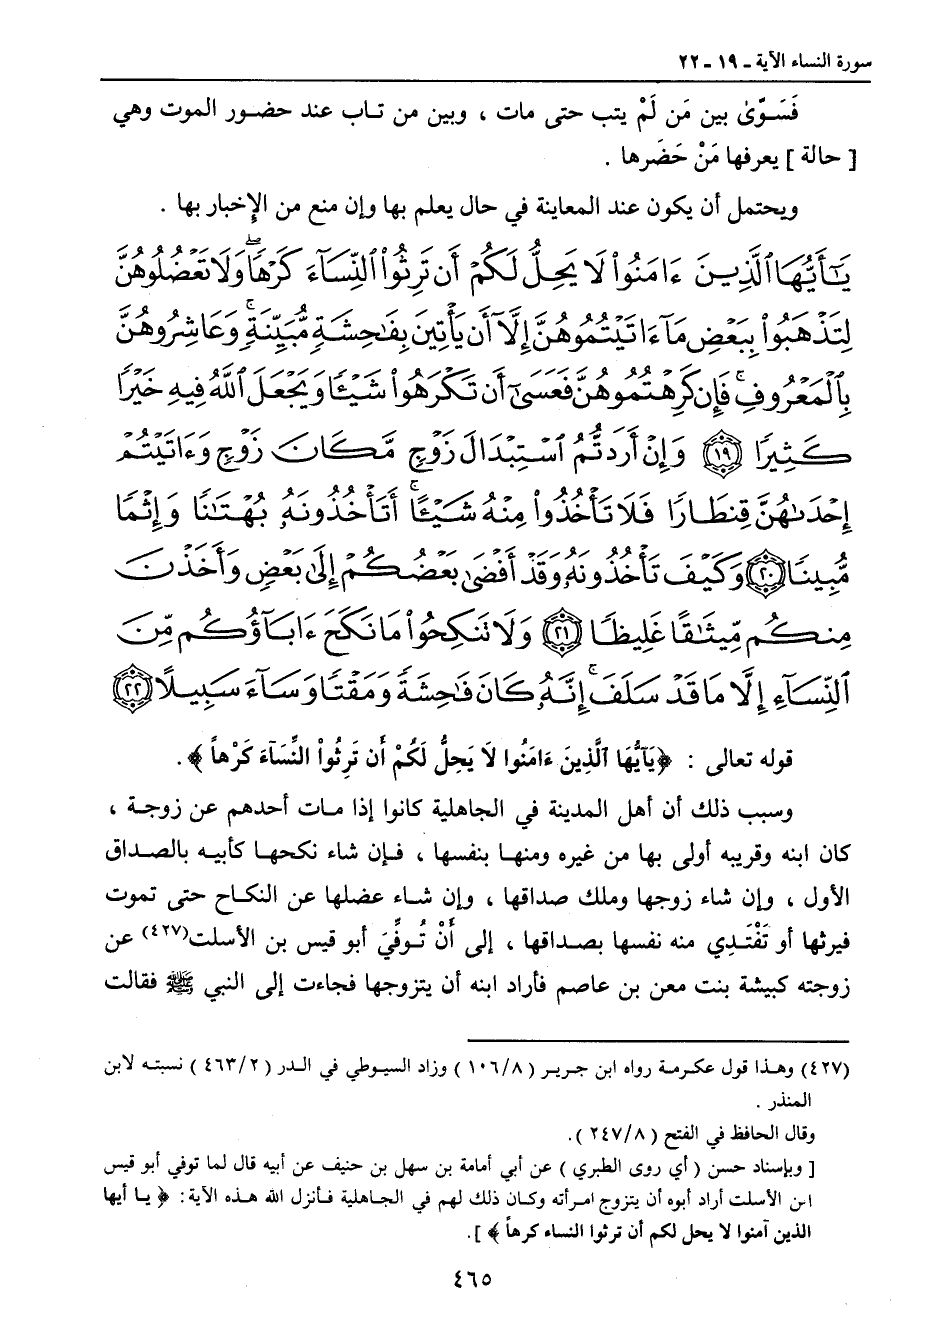 سورة النساء الآية - ١٩ - ٢٢
فَسَوَّىٰ بين مَن لَمْ يتب حتى مات ، وبين من تاب عند حضور الموت وهي
[ حالة ] يعرفها مَنْ حَضَرها .
ويحتمل أن يكون عند المعاينة في حال يعلم بها وإن منع من الإِخبار بها .
يَـٰٓأَيُّهَا ٱلَّذِينَ ءَامَنُوا۟ لَا يَحِلُّ لَكُمْ أَن تَرِثُوا۟ ٱلنِّسَآءَ كَرْهًا ۖ وَلَا تَعْضُلُوهُنَّ
لِتَذْهَبُوا۟ بِبَعْضِ مَآ ءَاتَيْتُمُوهُنَّ إِلَّآ أَن يَأْتِينَ بِفَـٰحِشَةٍ مُّبَيِّنَةٍ ۚ وَعَاشِرُوهُنَّ
بِٱلْمَعْرُوفِ ۚ فَإِن كَرِهْتُمُوهُنَّ فَعَسَىٰٓ أَن تَكْرَهُوا۟ شَيْـًٔا وَيَجْعَلَ ٱللَّهُ فِيهِ خَيْرًا
كَثِيرًا ١٩ وَإِنْ أَرَدتُّمُ ٱسْتِبْدَالَ زَوْجٍ مَّكَانَ زَوْجٍ وَءَاتَيْتُمْ
إِحْدَىٰهُنَّ قِنطَارًا فَلَا تَأْخُذُوا۟ مِنْهُ شَيْـًٔا ۚ أَتَأْخُذُونَهُۥ بُهْتَـٰنًا وَإِثْمًا
مُّبِينًا ٢٠ وَكَيْفَ تَأْخُذُونَهُۥ وَقَدْ أَفْضَىٰ بَعْضُكُمْ إِلَىٰ بَعْضٍ وَأَخَذْنَ
مِنكُم مِّيثَـٰقًا غَلِيظًا ٢١ وَلَا تَنكِحُوا۟ مَا نَكَحَ ءَابَآؤُكُم مِّنَ
ٱلنِّسَآءِ إِلَّا مَا قَدْ سَلَفَ ۚ إِنَّهُۥ كَانَ فَـٰحِشَةً وَمَقْتًا وَسَآءَ سَبِيلًا ٢٢
قوله تعالى : ﴿يَآيُّهَا ٱلَّذِينَ ءَامَنُوا لَا يَحِلُّ لَكُمْ أَن تَرِثُواْ النِّسَآءَ كَرْهاً ﴾ .
وسبب ذلك أن أهل المدينة في الجاهلية كانوا إذا مات أحدهم عن زوجة ،
كان ابنه وقريبه أولى بها من غيره ومنها بنفسها ، فإن شاء نكحها كأبيه بالصداق
الأول ، وإن شاء زوجها وملك صداقها ، وإن شاء عضلها عن النكاح حتى تموت
فيرثها أو تَفْتَدِي منه نفسها بصداقها ، إلى أَنْ تُوفِّيَ أبو قيس بن الأسلت(٤٢٧) عن
زوجته كبيشة بنت معن بن عاصم فأراد ابنه أن يتزوجها فجاءت إلى النبي ﷺ فقالت
(٤٢٧) وهذا قول عكرمة رواه ابن جرير ( ١٠٦/٨ ) وزاد السيوطي في الدر ( ٤٦٣/٢ ) نسبته لابن
المنذر .
وقال الحافظ في الفتح ( ٢٤٧/٨ ).
[ وبإسناد حسن ( أي روى الطبري ) عن أبي أمامة بن سهل بن حنيف عن أبيه قال لما توفي أبو قيس
ابن الأسلت أراد أبوه أن يتزوج امرأته وكان ذلك لهم في الجاهلية فأنزل الله هذه الآية: ﴿ يا أيها
الذين آمنوا لا يحل لكم أن ترثوا النساء كرهاً ﴾ ].
٤٦٥